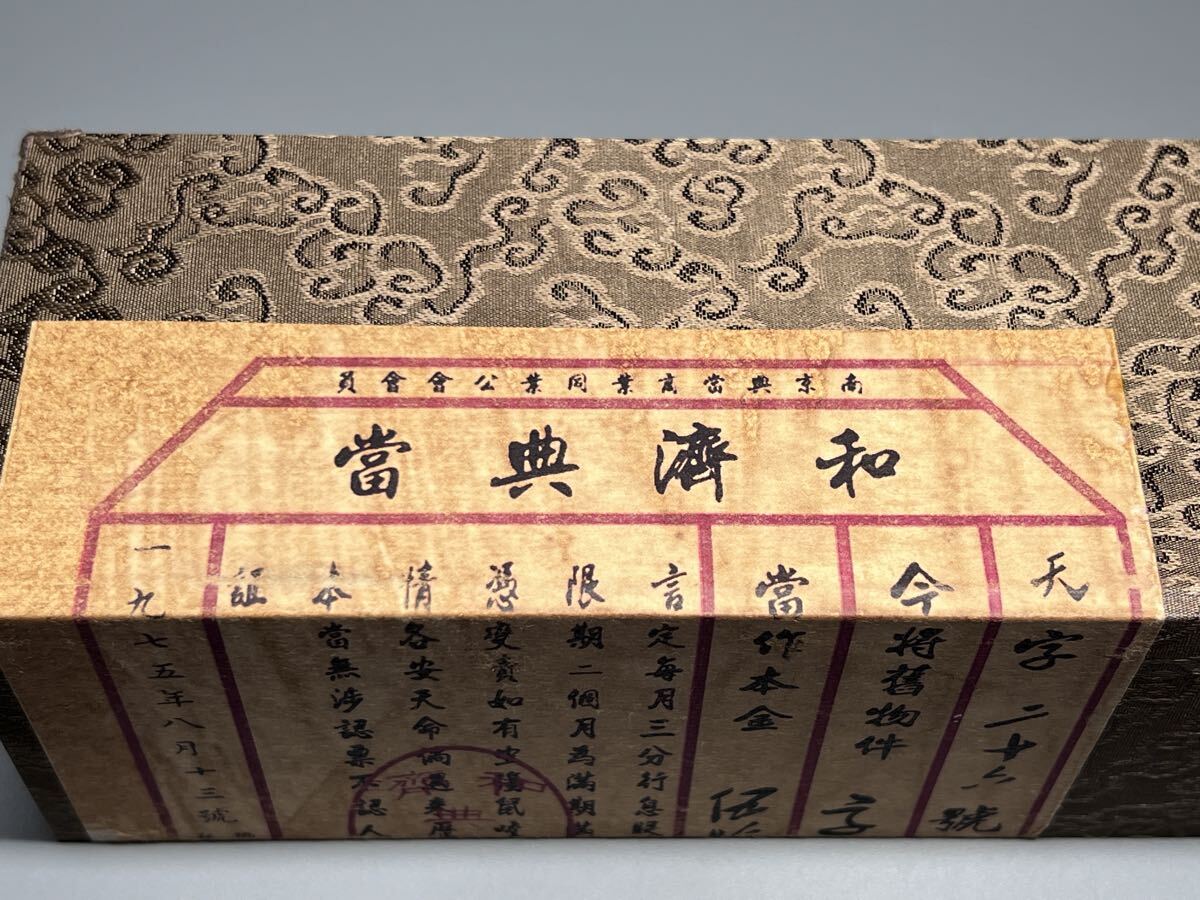 南京典當商業同業公會會員
和濟典當
天字二十六號
今將舊物件
當作本金伍
言定每月三分行息
限期二個月為滿期
憑變賣如有虫鼠咬
情各安天命倘遇來歷
本當無涉認票不認人
一九七五年八月十三號